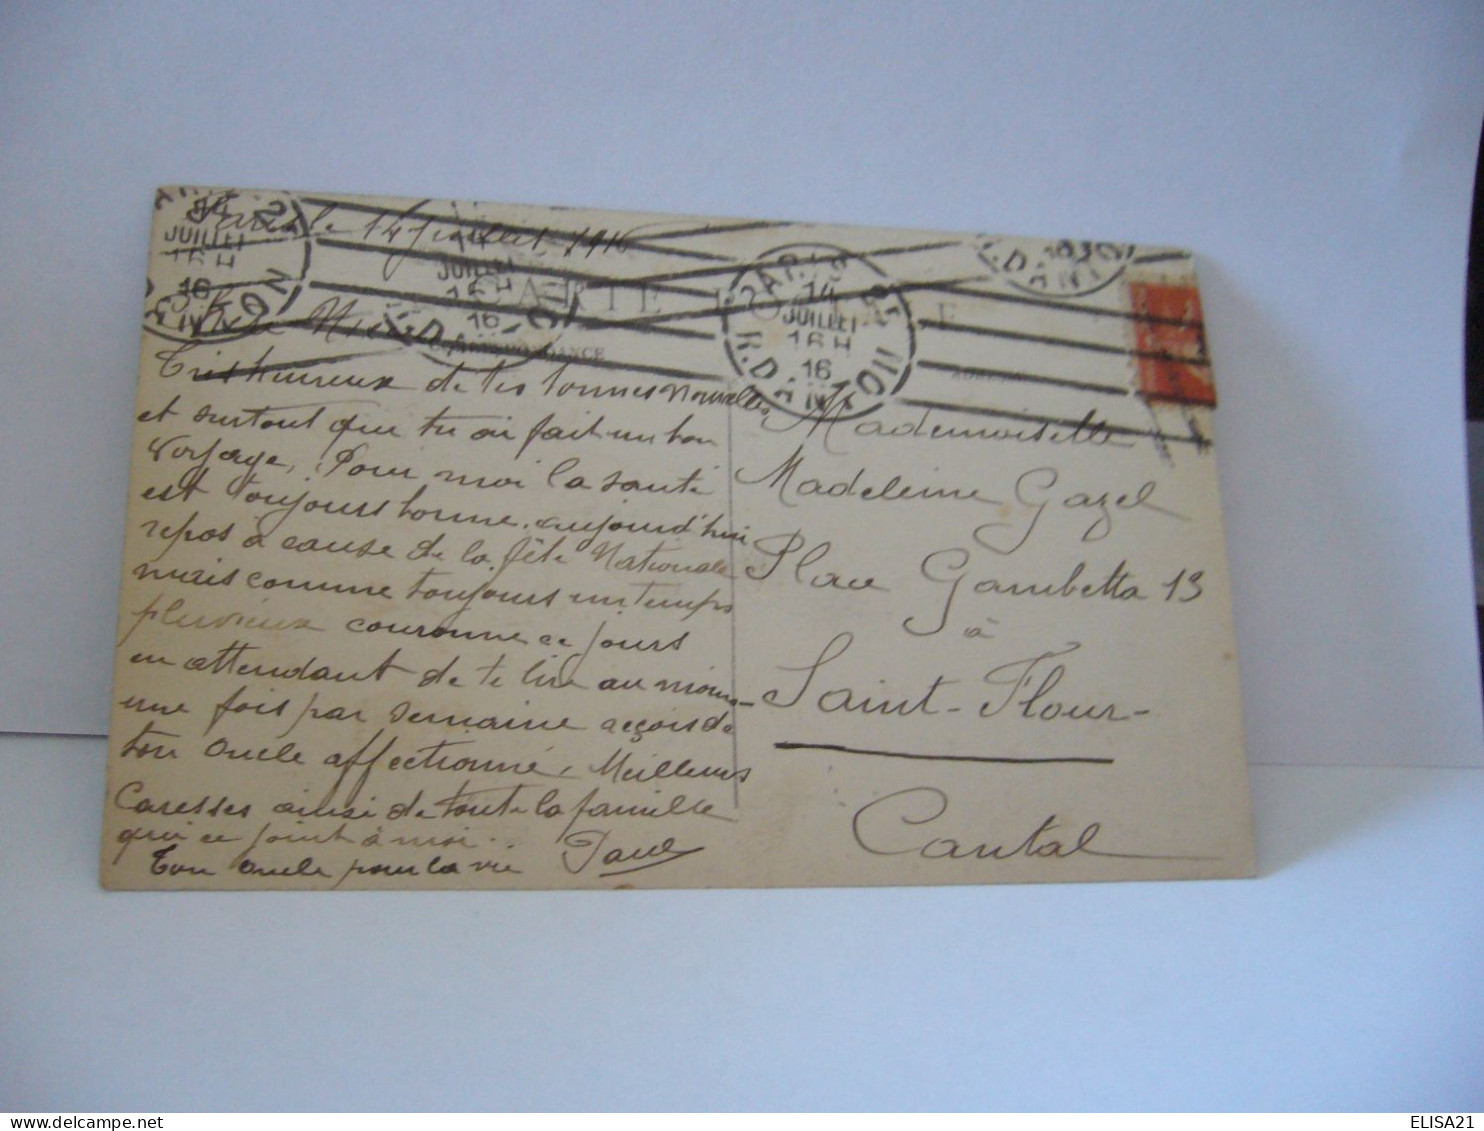 Paris le 14 Juillet 1916
CARTE POSTALE
CORRESPONDANCE
ADRESSE
PARIS 25
R. DANTON
14
JUILLET
16 H
16
Chère Nièce
Très heureux de tes bonnes nouvelles
et surtout que tu ai fait un bon
voyage, Pour moi la santé
est toujours bonne. aujourd'hui
repos à cause de la fête Nationale
mais comme toujours un temps
pluvieux couronne ce jours
en attendant de te lire au moins
une fois par semaine reçois de
ton oncle affectionné, Meilleurs
Caresses ainsi de toute la famille
qui ce joint à moi..
Ton oncle pour la vie Paul
Mademoiselle
Madeleine Gazel
Place Gambetta 13
à
Saint-Flour-
Cantal
ELISA21